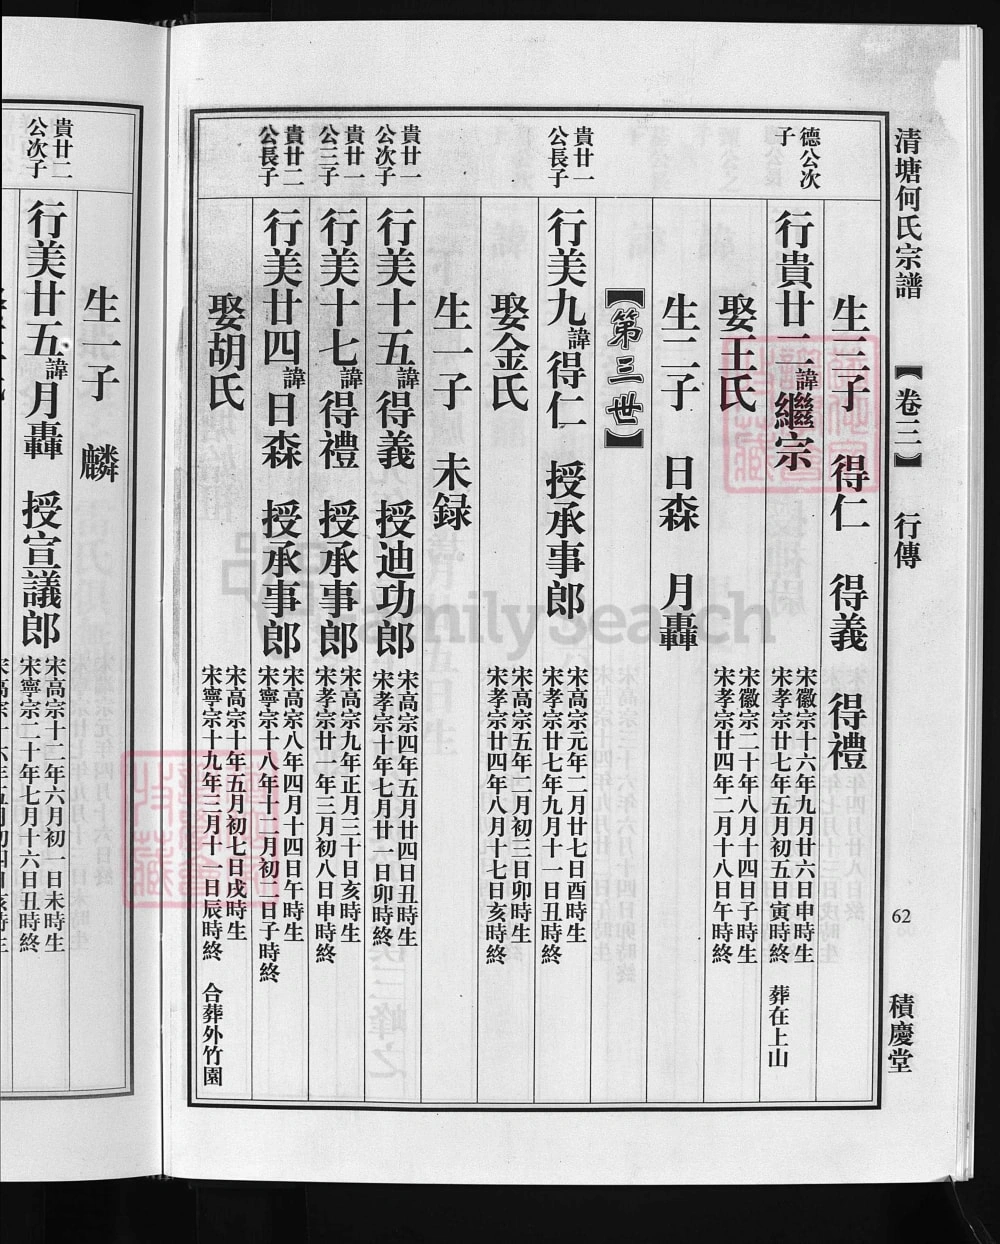 清塘何氏宗譜 【卷三】 行傳 62 積慶堂
生三子 得仁 得義 得禮
德公次子
行貴廿二諱繼宗 宋徽宗十六年九月廿六日申時生 宋孝宗廿七年五月初五日寅時終 葬在上山
娶王氏 宋徽宗二十年八月十四日子時生 宋孝宗廿四年二月十八日午時終
生二子 日森 月轟
【第三世】
貴廿一公長子
行美九諱得仁 授承事郎 宋高宗元年二月廿七日酉時生 宋孝宗廿七年九月十一日丑時終
娶金氏 宋高宗五年二月初三日卯時生 宋孝宗廿四年八月十七日亥時終
生一子 未録
貴廿一公次子
行美十五諱得義 授迪功郎 宋高宗四年五月廿四日丑時生 宋孝宗十年七月廿六日卯時終
貴廿一公三子
行美十七諱得禮 授承事郎 宋高宗九年正月三十日亥時生 宋孝宗廿一年三月初八日申時終
貴廿二公長子
行美廿四諱日森 授承事郎 宋高宗八年四月十四日午時生 宋寧宗十八年十二月初二日子時終
娶胡氏 宋高宗十年五月初七日戌時生 宋寧宗十九年三月十一日辰時終 合葬外竹園
生一子 麟
貴廿二公次子
行美廿五諱月轟 授宣議郎 宋高宗十二年六月初一日未時生 宋寧宗二十年七月十六日丑時終
FamilySearch